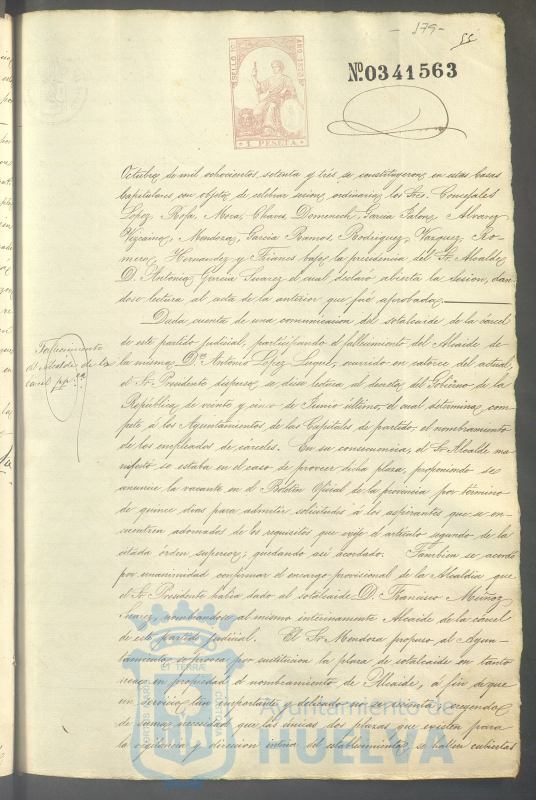 - 179 -
55
SELLO 10º
AÑO 1873
1 PESETA.
Nº 0341563
Octubre de mil ochocientos setenta y tres se constituyeron en estas Casas
Capitulares con objeto de celebrar sesion ordinaria los Sres. Concejales
Lopez Rofa, Mora, Chaves, Domenech, Garcia Polon, Alvarez
Vizcaino, Mendoza, Garcia Ramos, Rodriguez, Vazquez, Ro-
mero, Hernandez y Triones bajo la presidencia del Sr. Alcalde
D. Antonio Garcia Suarez el cual declaró abierta la sesion, dan-
dose lectura al acta de la anterior que fué aprobada.
Dada cuenta de una comunicacion del sotalcaide de la cárcel
de este partido judicial, participando el fallecimiento del Alcaide de
la misma Dn. Antonio Lopez Luque, ocurrido en catorce del actual,
el Sr. Presidente dispuso, se diese lectura al decreto del Gobierno de la
República de veinte y cinco de Junio último, el cual determina com-
pete á los Ayuntamientos de las Capitales de partido, el nombramiento
de los empleados de cárceles. En su consecuencia, el Sr. Alcalde ma-
nifestó se estaba en el caso de proveer dicha plaza, proponiendo se
anuncie la vacante en el Boletin Oficial de la provincia por término
de quince dias para admitir solicitudes á los aspirantes que se en-
cuentren adornados de los requisitos que exije el artículo segundo de la
citada órden superior; quedando así acordado. Tambien se acordó
por unanimidad confirmar el encargo provisional de la Alcaldia que
el Sr. Presidente habia dado al sotalcaide D. Francisco Muñoz
Suarez, nombandole al mismo interinamente Alcaide de la cárcel
de este partido judicial. El Sr. Mendoza propuso al Ayun-
tamiento se provea por sustitucion la plaza de sotalcaide en tanto
recae en propiedad el nombramiento de Alcaide, á fin de que
en servicio tan importante y delicado no se cuenta creyendo
de suma necesidad que las únicas dos plazas que existen para
la vigilancia y direccion interior del establecimiento, se hallen cubiertas
Fallecimiento
del Alcaide de la
carcel pp.ca
Ayuntamiento de
HUELVA